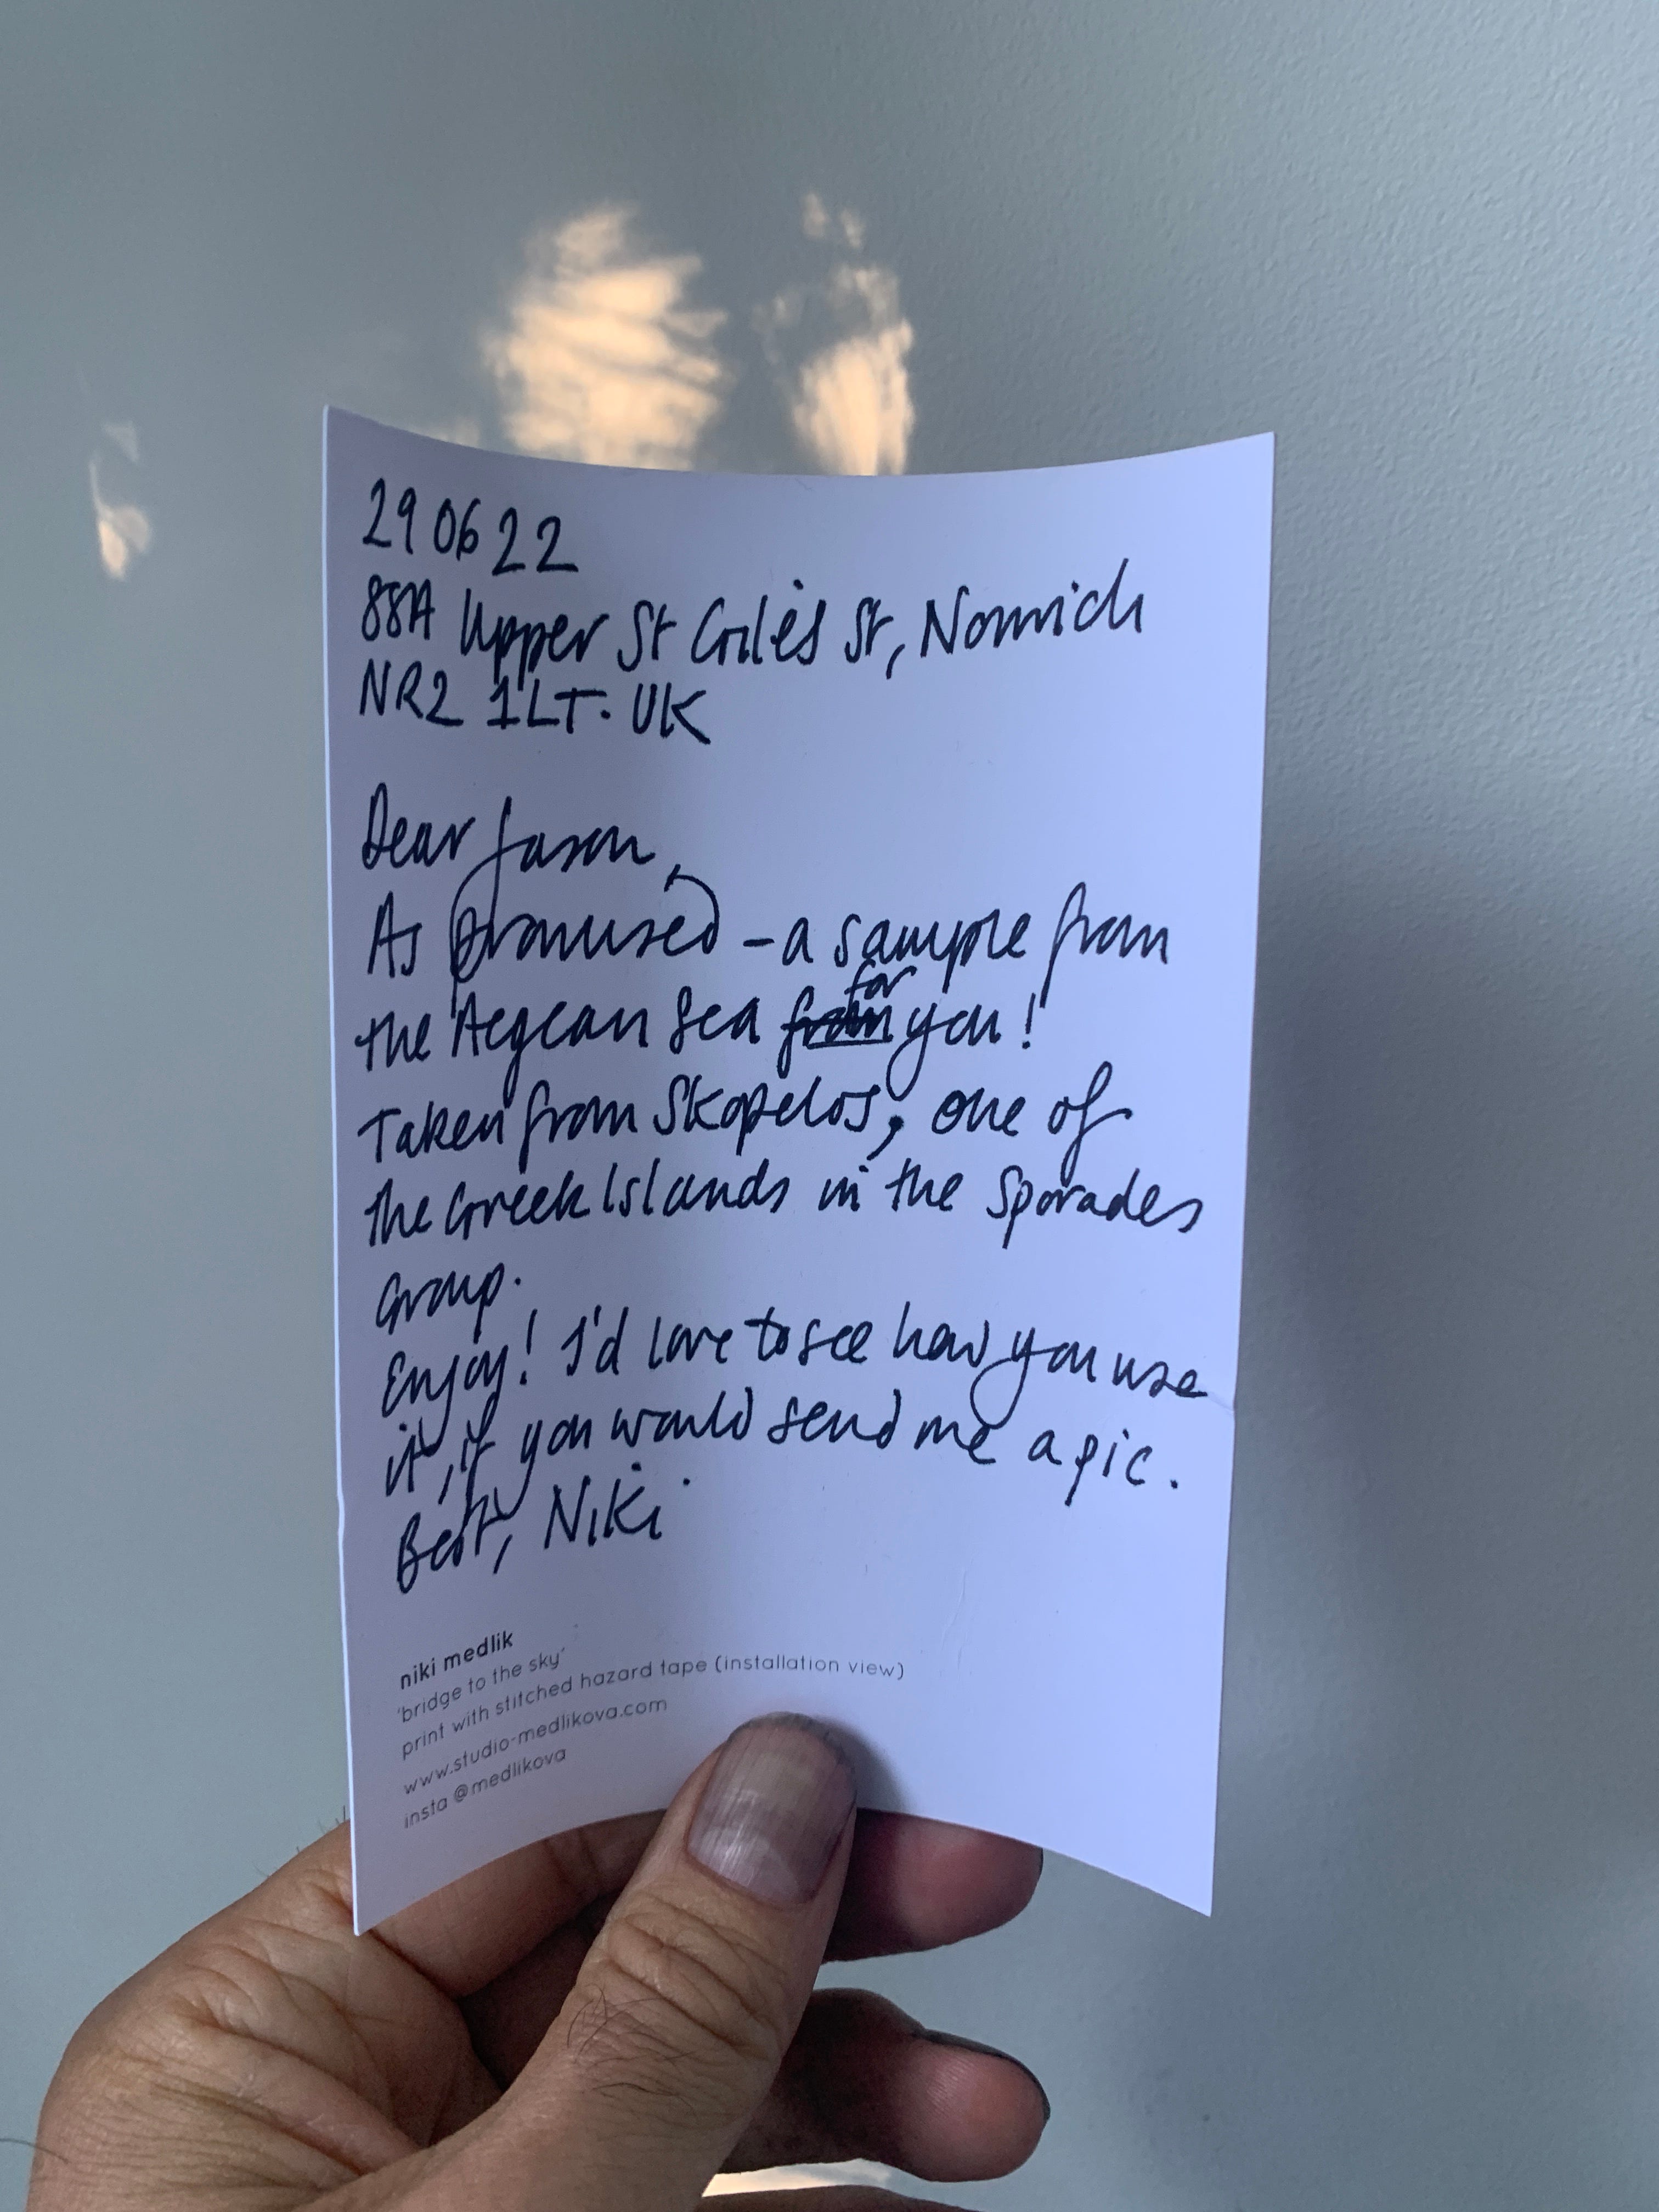 29 06 22
88A Upper St Giles St, Norwich
NR2 1LT. UK
Dear Jason,
As promised - a sample from
the Aegean Sea from for you!
Taken from Skopelos, one of
the Greek Islands in the Sporades
Group.
Enjoy! I'd love to see how you use
it, if you would send me a pic.
Best, Niki
niki medlik
'bridge to the sky'
print with stitched hazard tape (installation view)
www.studio-medlikova.com
insta @medlikova